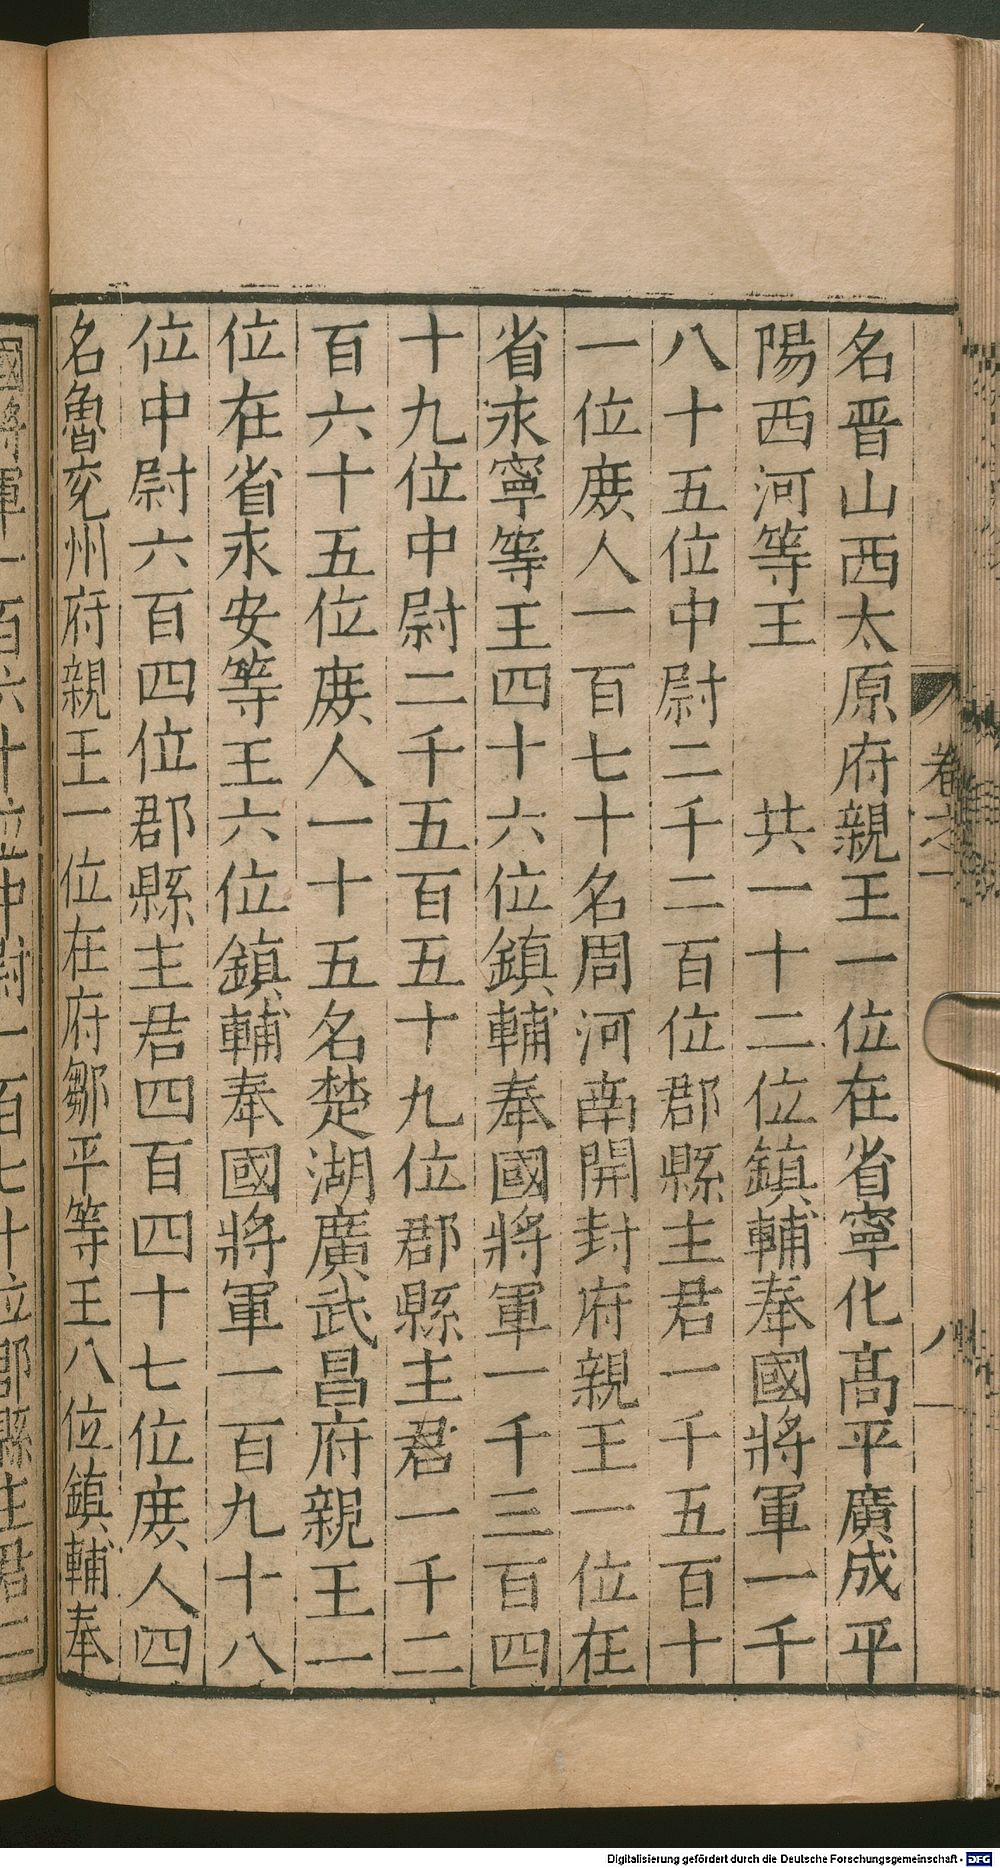 名晋山西太原府親王一位在省寧化髙平廣成平
陽西河等王　共一十二位鎮輔奉國將軍一千
八十五位中尉二千二百位郡縣主君一千五百十
一位庻人一百七十名周河南開封府親王一位在
省永寧等王四十六位鎮輔奉國將軍一千三百四
十九位中尉二千五百五十九位郡縣主君一千二
百六十五位庻人一十五名楚湖廣武昌府親王一
位在省永安等王六位鎮輔奉國將軍一百九十八
位中尉六百四位郡縣主君四百四十七位庻人四
名魯兖州府親王一位在府鄒平等王八位鎮輔奉
國將軍一百六十位中尉一百七十位郡縣主君二
卷之一
八
Digitalisierung gefördert durch die Deutsche Forschungsgemeinschaft - DFG